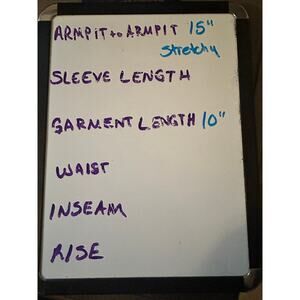 ARMPIT to ARMPIT 15"
Stretchy
SLEEVE LENGTH
GARMENT LENGTH 10"
WAIST
INSEAM
RISE